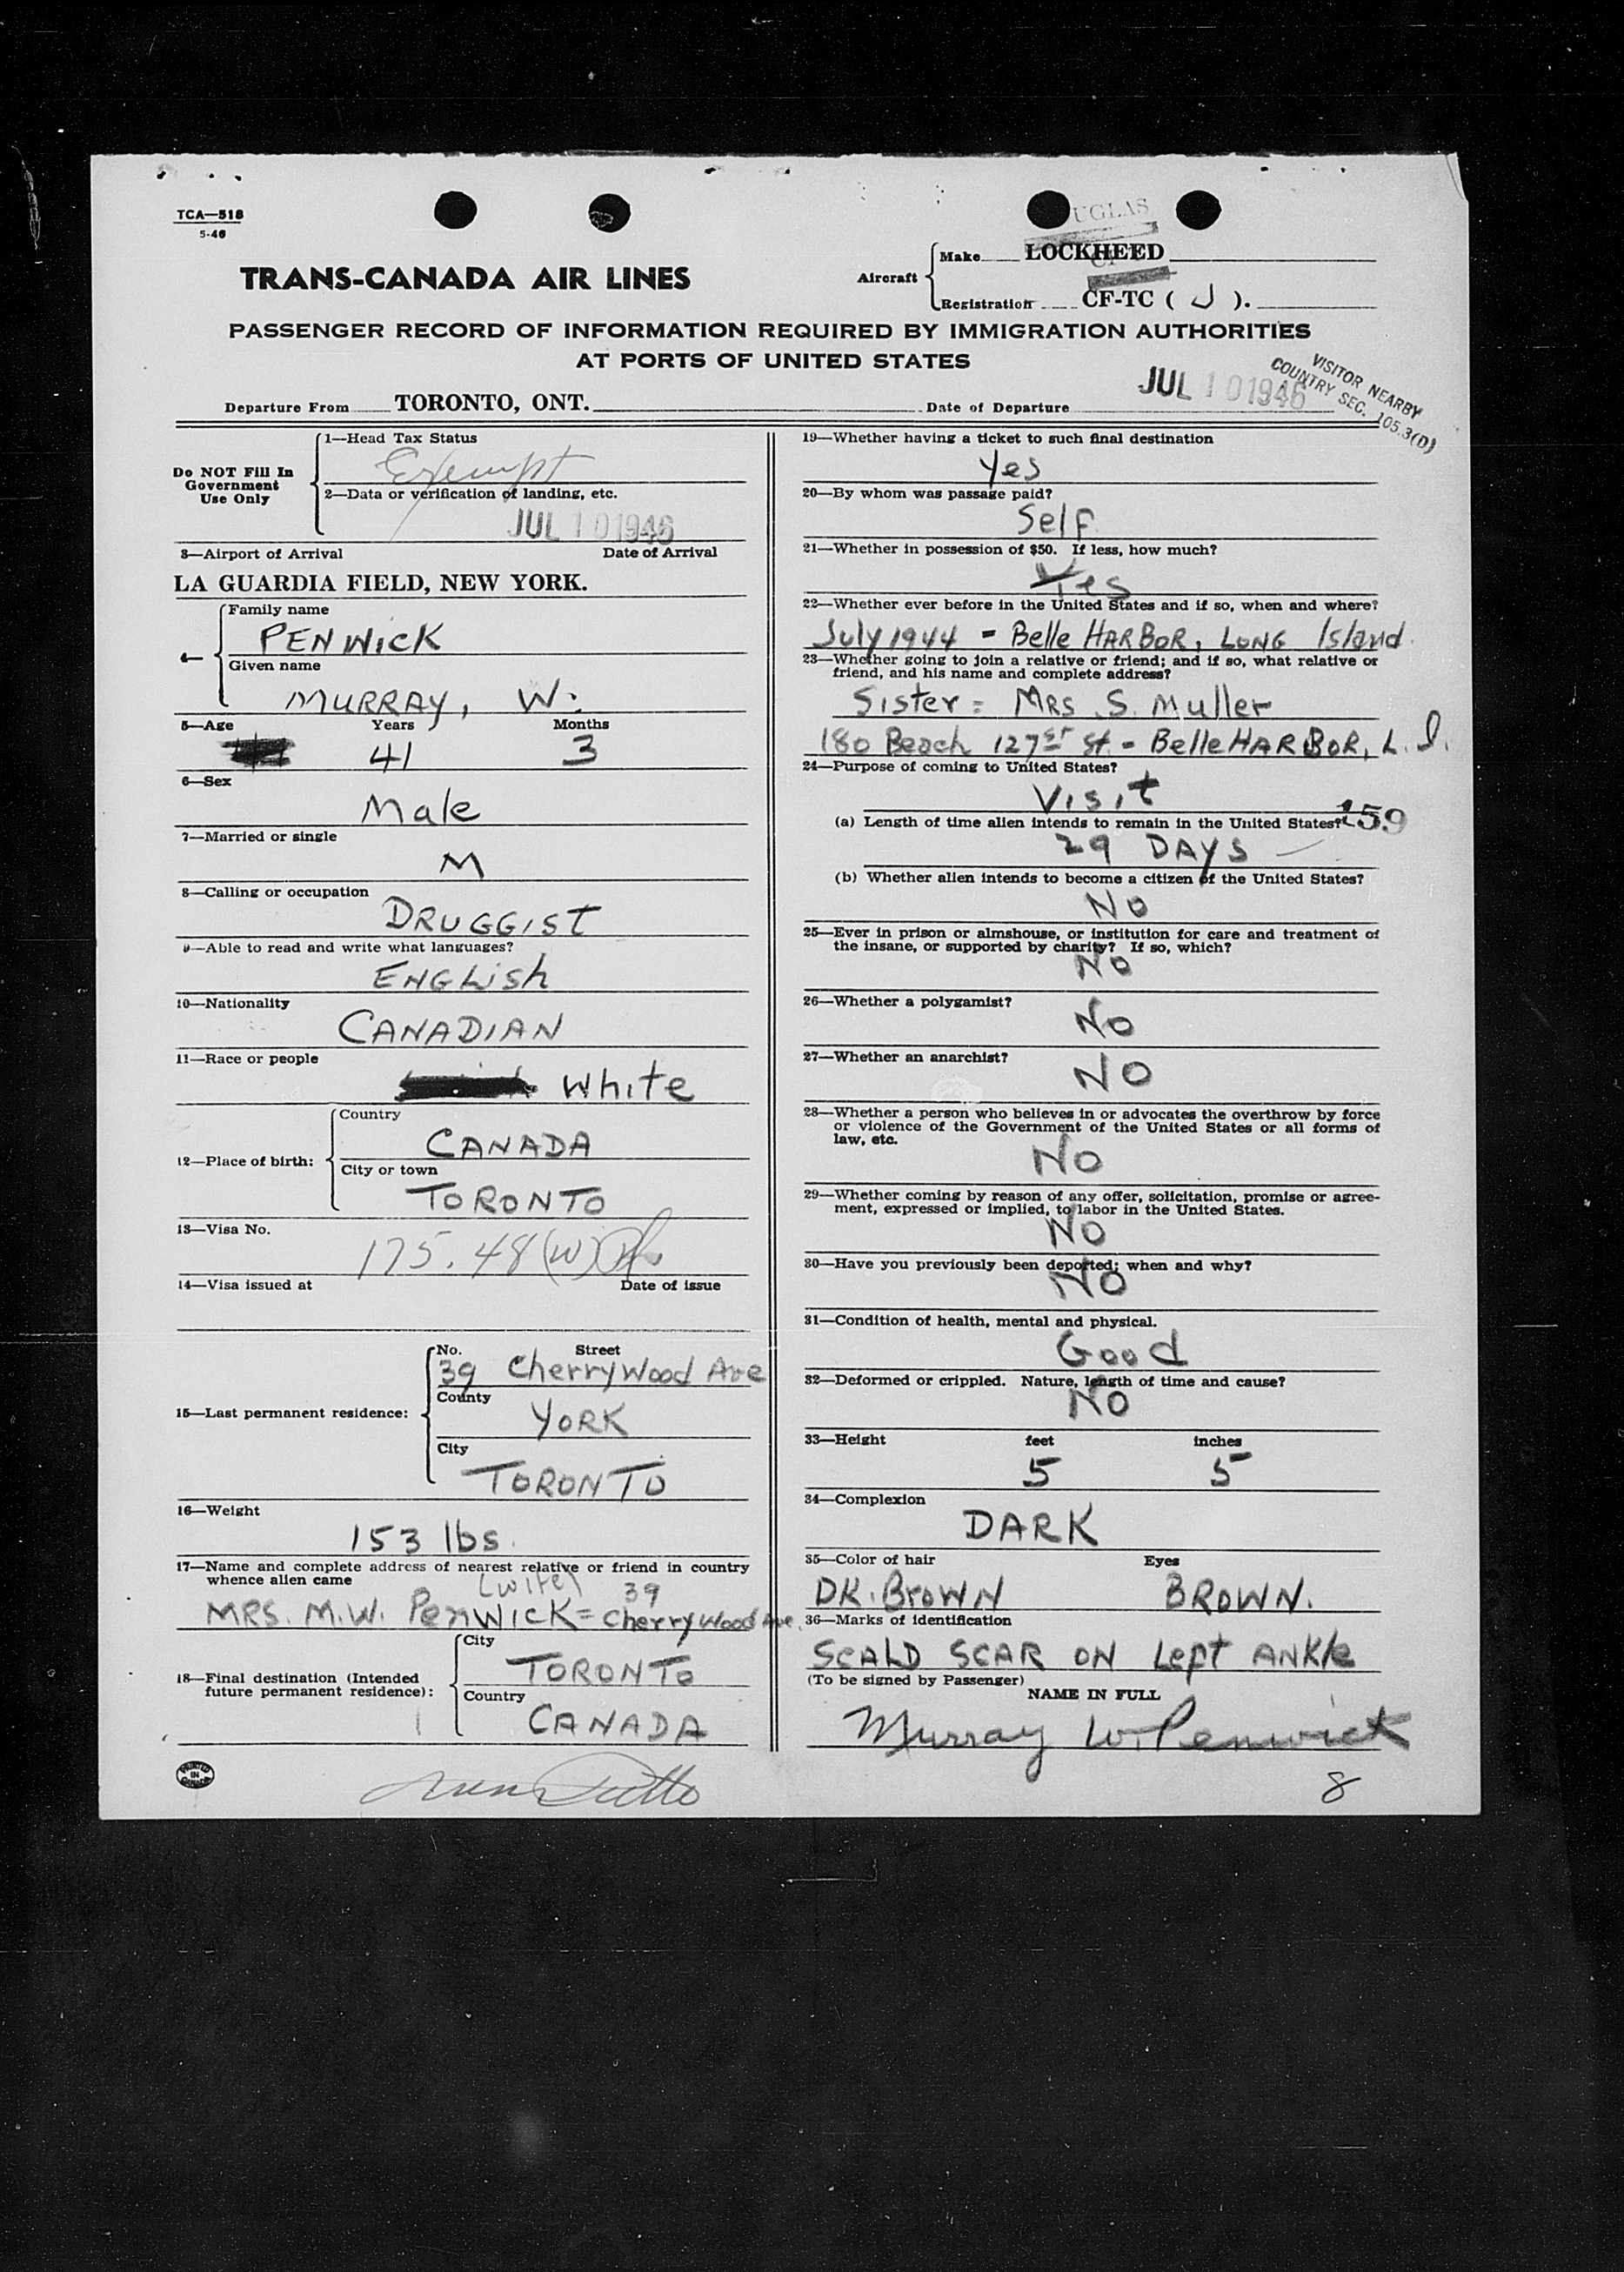 TCA—518
5-46
UGLAS
TRANS-CANADA AIR LINES
Aircraft
Make LOCKHEED
Registration CF-TC ( J ).
PASSENGER RECORD OF INFORMATION REQUIRED BY IMMIGRATION AUTHORITIES
AT PORTS OF UNITED STATES
VISITOR NEARBY
COUNTRY SEC. 105.3(D)
Departure From TORONTO, ONT. Date of Departure JUL 10 1946
Do NOT Fill In
Government
Use Only
1—Head Tax Status
Exempt
2—Data or verification of landing, etc.
JUL 10 1946
3—Airport of Arrival Date of Arrival
LA GUARDIA FIELD, NEW YORK.
4—
Family name
PENWICK
Given name
MURRAY, W.
5—Age Years Months
41 3
6—Sex
Male
7—Married or single
M
8—Calling or occupation
DRUGGIST
9—Able to read and write what languages?
ENGLISH
10—Nationality
CANADIAN
11—Race or people
White
12—Place of birth:
Country
CANADA
City or town
TORONTO
13—Visa No.
175.48(W)
14—Visa issued at Date of issue
15—Last permanent residence:
No. Street
39 CherryWood Ave
County
YORK
City
TORONTO
16—Weight
153 lbs.
17—Name and complete address of nearest relative or friend in country
whence alien came
(wife) 39
MRS. M.W. PenWICK = CherryWood Ave.
18—Final destination (Intended
future permanent residence):
City
TORONTO
Country
CANADA
PRINTED
IN
CANADA
19—Whether having a ticket to such final destination
Yes
20—By whom was passage paid?
Self
21—Whether in possession of $50. If less, how much?
Yes
22—Whether ever before in the United States and if so, when and where?
July 1944 - Belle HARBOR, LONG Island.
23—Whether going to join a relative or friend; and if so, what relative or
friend, and his name and complete address?
Sister = MRS. S. Muller
180 Beach 127ST St. - Belle HARBOR, L. I.
24—Purpose of coming to United States?
Visit
(a) Length of time alien intends to remain in the United States?
159
29 DAYS
(b) Whether alien intends to become a citizen of the United States?
No
25—Ever in prison or almshouse, or institution for care and treatment of
the insane, or supported by charity? If so, which?
No
26—Whether a polygamist?
No
27—Whether an anarchist?
NO
28—Whether a person who believes in or advocates the overthrow by force
or violence of the Government of the United States or all forms of
law, etc.
No
29—Whether coming by reason of any offer, solicitation, promise or agree-
ment, expressed or implied, to labor in the United States.
No
30—Have you previously been deported; when and why?
NO
31—Condition of health, mental and physical.
Good
32—Deformed or crippled. Nature, length of time and cause?
NO
33—Height feet inches
5 5
34—Complexion
DARK
35—Color of hair Eyes
DK. BroWN BROWN.
36—Marks of identification
SCALD SCAR ON Left ANKle
(To be signed by Passenger)
NAME IN FULL
Murray W. Penwick
8